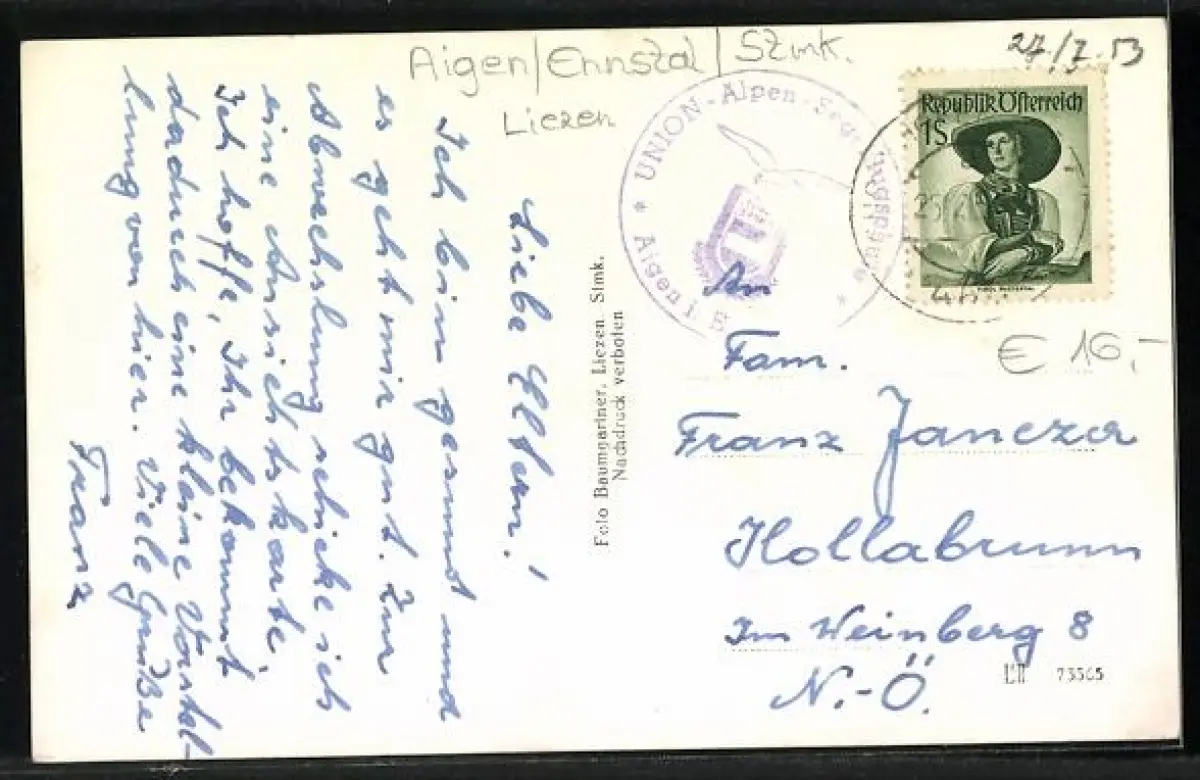 Aigen/Ennstal/Stmk.
Liezen
27/7.53
Liebe Eltern!
Ich bin gesund und
es geht mir gut. Zur
Abwechslung schicke ich
eine Ansichtskarte.
Ich hoffe, Ihr bekommt
dadurch eine kleine Vorstel-
lung von hier. Viele Grüße
Franz
Foto Baumgartner, Liezen, Stmk.
Nachdruck verboten
* UNION-Alpen-Sege
Aigen i. E
Republik Österreich
1S
€ 16,-
An
Fam.
Franz Janczer
Hollabrunn
Im Weinberg 8
N.-Ö.
73565